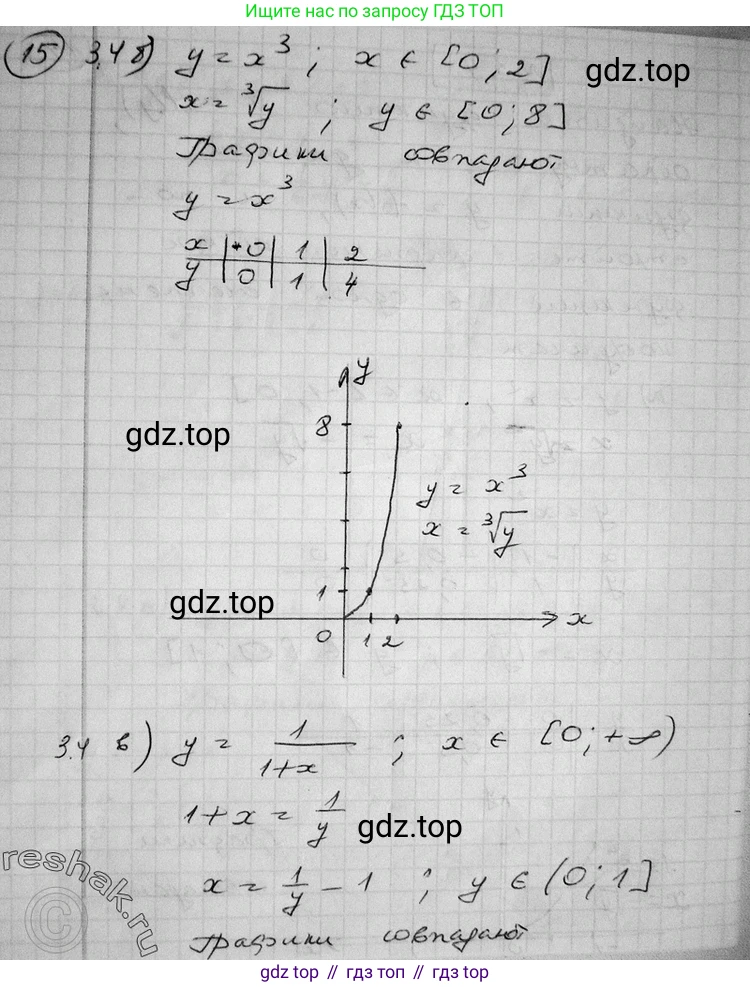 Ищите нас по запросу ГДЗ ТОП
15 3.4 б) y = x³ ; x ∈ [0 ; 2]
gdz.top
x = ∛y ; y ∈ [0 ; 8]
Графики совпадают
y = x³
x | 0 | 1 | 2
y | 0 | 1 | 4
y
8
gdz.top
y = x³
x = ∛y
1
gdz.top
0 1 2 x
3.4 в) y = 1/(1+x) ; x ∈ [0 ; +∞)
1 + x = 1/y
gdz.top
x = 1/y - 1 ; y ∈ (0 ; 1]
reshak.ru
©
Графики совпадают
gdz.top // гдз топ // gdz.top